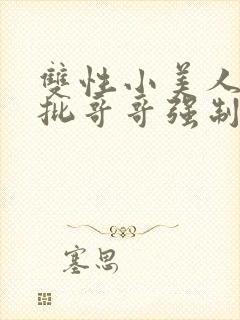 雙性小美人
批哥哥强制
塞思